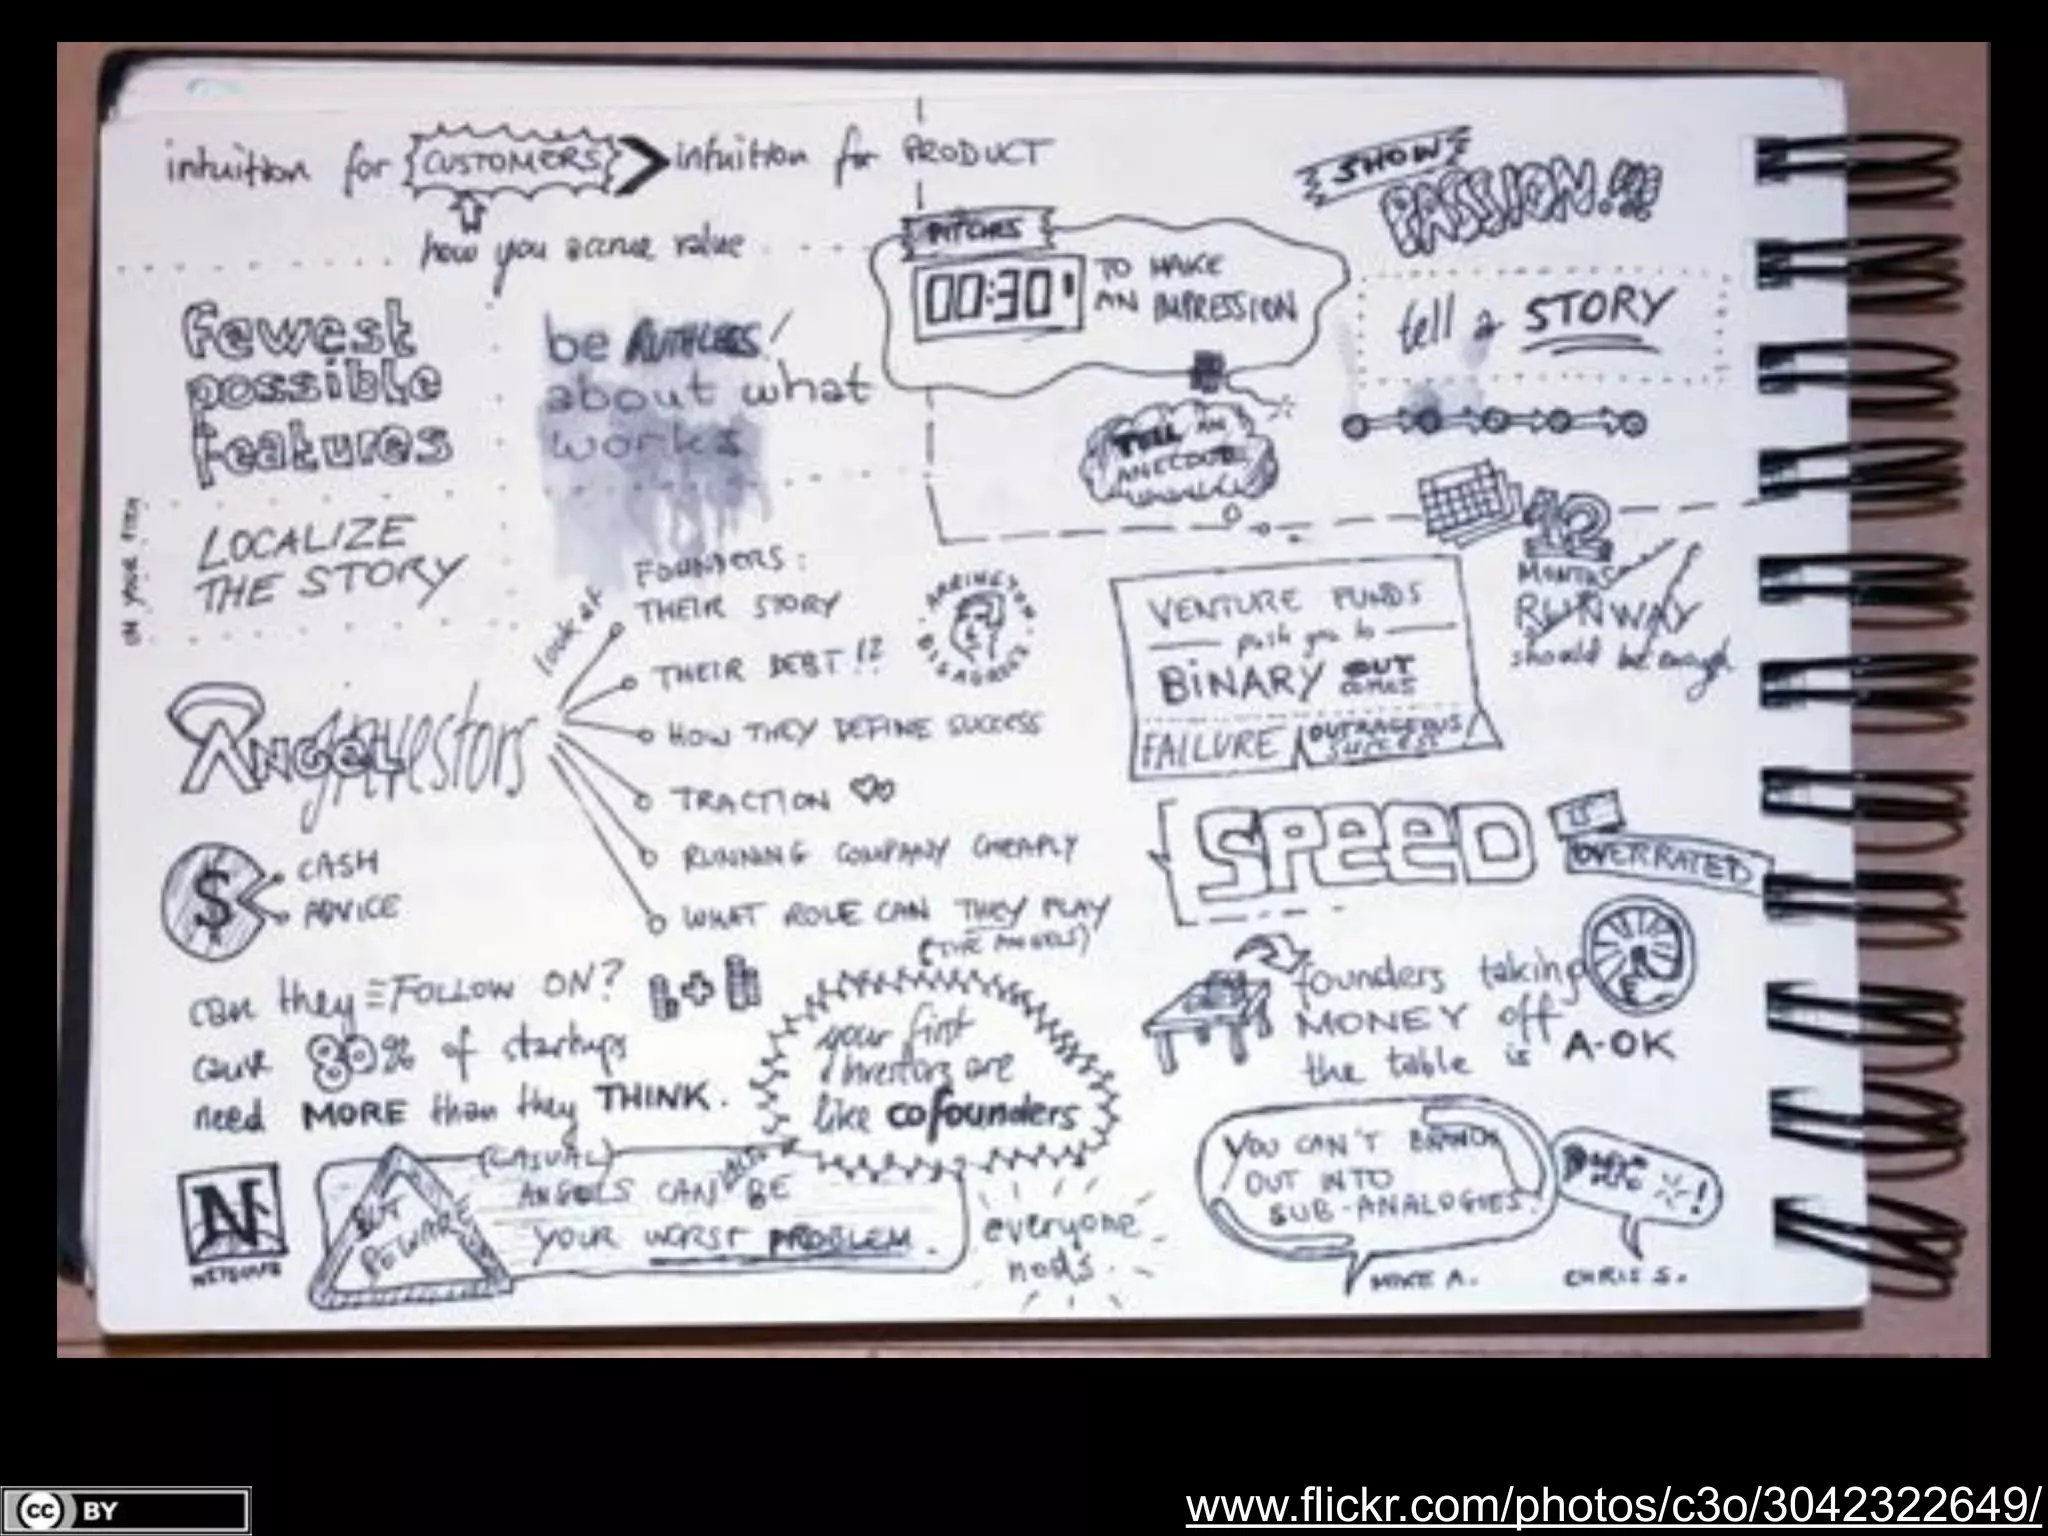 intuition for CUSTOMERS > intuition for PRODUCT
how you accrue value
fewest
possible
features
be RUTHLESS!
about what
works
PITCHES
00:30"
TO MAKE
AN IMPRESSION
TELL AN
ANECDOTE
SHOW
PASSION!!!
tell a STORY
IN YOUR PITCH
LOCALIZE
THE STORY
12
MONTHS
RUNWAY
should be enough
ANGEL investors
look at
FOUNDERS:
THEIR STORY
THEIR DEBT!?
HOW THEY DEFINE SUCCESS
TRACTION
RUNNING COMPANY CHEAPLY
WHAT ROLE CAN THEY PLAY
(THE ANGELS)
ARRINGTON
DISAGREES
VENTURE FUNDS
push you to
BINARY OUT
COMES
FAILURE
OUTRAGEOUS
SUCCESS
SPEED
IS
OVERRATED
$
CASH
ADVICE
can they FOLLOW ON?
cause 80% of startups
need MORE than they THINK.
your first
investors are
like cofounders
founders taking
MONEY off
the table is A-OK
N
NETSCAPE
BUT
BEWARE
(CASUAL)
ANGELS CAN ALSO BE
YOUR WORST PROBLEM.
everyone
nods.
YOU CAN'T BRANCH
OUT INTO
SUB-ANALOGIES.
MIKE A.
CHRIS S.
cc BY
www.flickr.com/photos/c3o/3042322649/